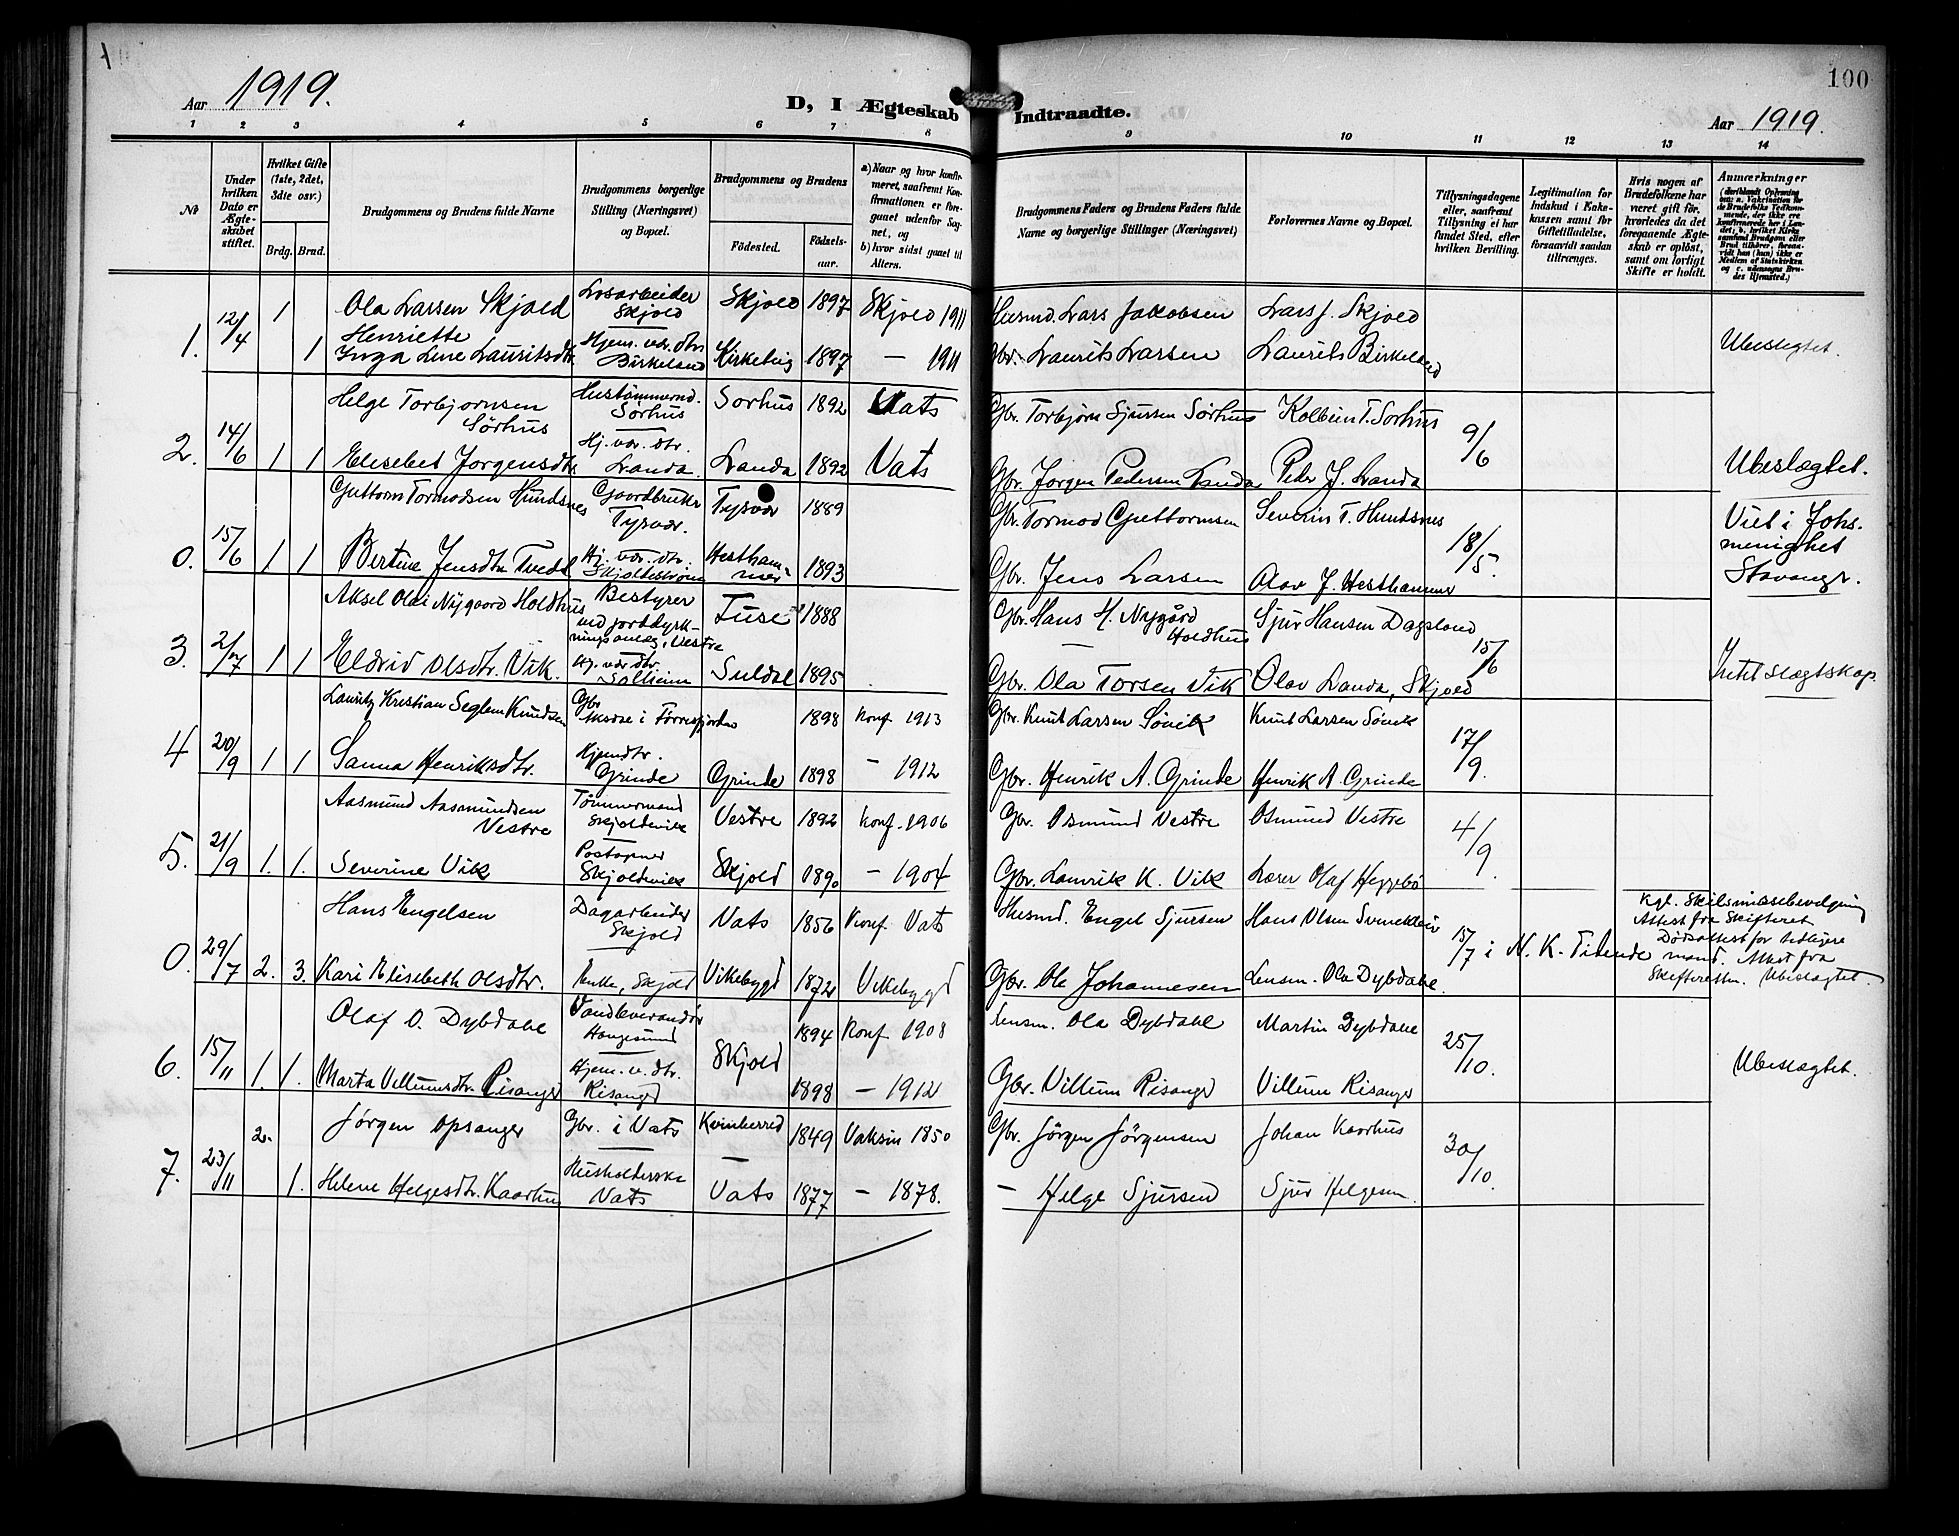 Aar 1919.
D, I Ægteskab Indtraadte.
100
Aar 1919.
1 2 3 4 5 6 7 8 9 10 11 12 13 14
No
Under hvilken Dato er Ægteskabet stiftet.
Hvilket Gifte (1ste, 2det, 3die osv.)
Brdg. Brud.
Brudgommens og Brudens fulde Navne
Brudgommens borgerlige Stilling (Næringsvei) og Bopæl.
Brudgommens og Brudens
Fødested. Fødselsaar.
a) Naar og hvor konfirmeret, saafremt Konfirmationen er foregaaet udenfor Sognet, og
b) hvor sidst gaaet til Alters.
Brudgommens Faders og Brudens Faders fulde Navne og borgerlige Stillinger (Næringsvei)
Forlovernes Navne og Bopæl.
Tillysningsdagene eller, saafremt Tillysning ei har fundet Sted, efter hvilken Bevilling.
Legitimation for Indskud i Enkekassen samt for Giftetilladelse, forsaavidt saadan tiltrænges.
Hvis nogen af Brudefolkene har været gift før, hvorledes da det foregaaende Ægteskab er opløst, samt om lovligt Skifte er holdt.
Anmærkninger
1. 12/4 1 Ola Larsen Skjold Løsarbeider Skjold Skjold 1897 Skjold 1911 Husmd. Lars Jakobsen Lars J. Skjold
1 Henriette Inga Line Lauritsdtr. Hjem. vær. dtr. Birkeland Kirkelvig 1897 — 1911 Gbr. Laurits Larsen Laurits Birkeland Ubeslegtet.
Helge Torbjørnsen Sørhus Hustømmermd. Sørhus Sørhus 1892 Vats Gbr. Torbjørn Sjursen Sørhus Kolbein T. Sørhus 9/6
2. 14/6 1 1 Elisebet Jørgensdtr. Hj. vær. dtr. Landa. Landa 1892 Vats Gbr. Jørgen Pedersen Landa Peder J. Landa Ubeslægtet.
Guttorm Tormodsen Hundsnes Gaardbruker Tysvær. Tysvær 1889 Gbr. Tormod Guttormsen Severin T. Hundsnes 18/5.
0. 15/6 1 1 Bertine Jensdtr. Tvedt Hj. vær. dtr. Skjoldestrøm Hesthammer 1893 Gbr. Jens Larsen Olav J. Hesthammer Viet i Johs. menighet Stavanger.
Aksel Olai Nygaard Holdhus Bestyrer ved jorddyrkningsanlæg, Vestre Fuse 1888 Gbr. Hans H. Nygård Holdhus Sjur Hansen Dagsland 15/6
3. 2/7 1 1 Eldrid Olsdtr. Vik. Hj. vær. dtr. Solheim Suldal 1895 Gbr. Ola Torsen Vik Olav Landa, Skjold Intet slægtskap.
Lauritz Kristian Seglem Knudsen Gbr. 1898 Konf. 1913 Gbr. Knut Larsen Søvik Knut Larsen Søvik 17/9.
4 20/9 1 1 Sanna Henriksdtr. Hjem. dtr. Grinde Grinde 1898 — 1912 Gbr. Henrik A. Grinde Henrik A. Grinde
Aasmund Aasmundsen Vestre Tømmermand Skjoldevik Vestre 1892 Konf. 1906 Gbr. Osmund Vestre Osmund Vestre 4/9
5. 21/9 1. 1. Severine Vik Postopner Skjoldevik Skjold 1890 — 1904 Gbr. K. Vik Lærer Olaf Heggebø
Hans Engelsen Dagarbeider Skjold Vats 1856 Konf. Vats Husmd. Engel Sjursen Hans Olsen 15/7 i N. K. Tidende Kgl. Skilsmissebevilgning Attest fra Skifteret
0. 29/7 2. 3. Kari Elisebeth Olsdtr. Enke, Skjold Vikebygd 1872 Vikebygd Gbr. Ole Johannesen Lensm. Ola Dybdahl. Dødsattest for tidligere mand. Attest fra Skifteretten. Ubeslægtet.
Olaf O. Dybdahl Vandleverandør Haugesund Skjold 1894 Konf. 1908 Lensm. Ola Dybdahl Martin Dybdahl 25/10.
6. 15/11 1. 1. Marta Villumsdtr. Risanger Hjem. v. dtr. Risanger 1898 — 1912 Gbr. Villum Risanger Villum Risanger Ubeslægtet.
2. Jørgen Opsanger Gbr. i Vats Kvinherred 1849 Vaksin 1850 Gbr. Jørgen Jørgensen Johan Kaarhus 30/10.
7. 23/11 1. Helene Helgesdtr. Kaarhus Husholderske Vats Vats 1877 — 1878. — Helge Sjursen Sjur Helgesen